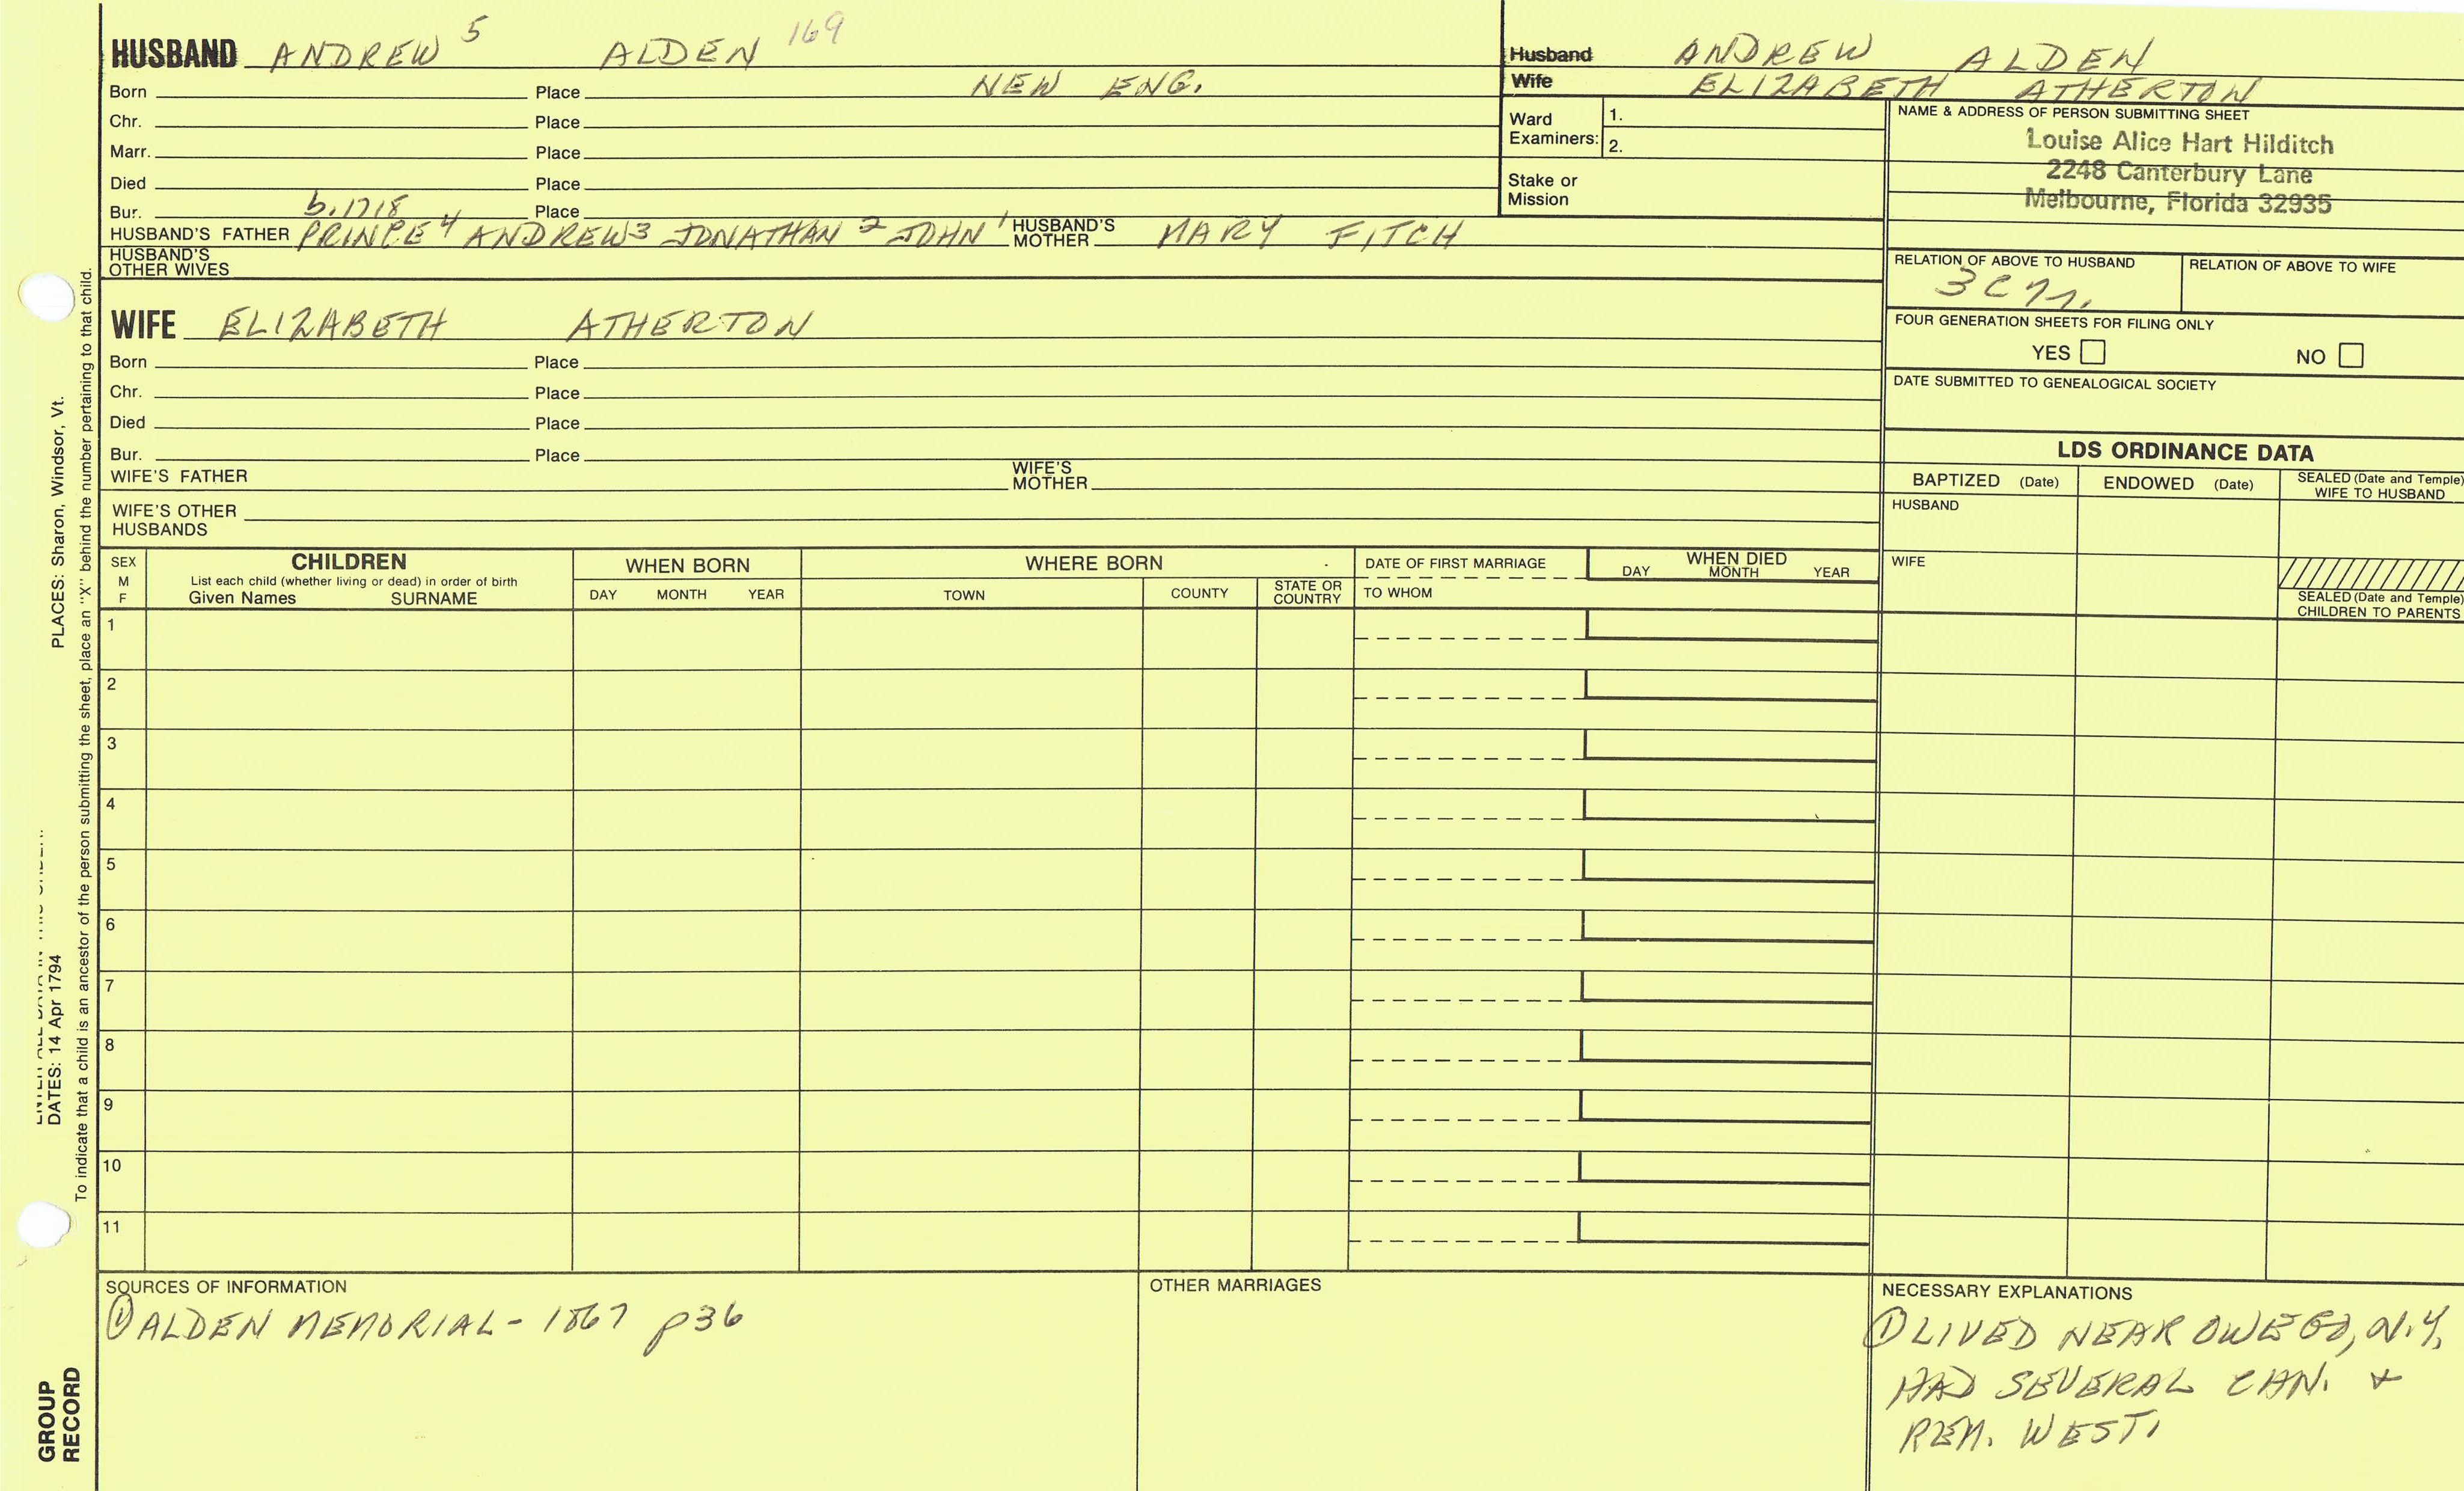 HUSBAND ANDREW 5 ALDEN 169
Born Place NEW ENG.
Chr. Place
Marr. Place
Died Place
Bur. b. 1718 Place
HUSBAND'S FATHER PRINCE 4 ANDREW 3 JONATHAN 2 JOHN 1 HUSBAND'S MOTHER MARY FITCH
HUSBAND'S OTHER WIVES
WIFE ELIZABETH ATHERTON
Born Place
Chr. Place
Died Place
Bur. Place
WIFE'S FATHER WIFE'S MOTHER
WIFE'S OTHER HUSBANDS
Husband ANDREW ALDEN
Wife ELIZABETH ATHERTON
Ward Examiners: 1.
2.
Stake or Mission
NAME & ADDRESS OF PERSON SUBMITTING SHEET
Louise Alice Hart Hilditch
2248 Canterbury Lane
Melbourne, Florida 32935
RELATION OF ABOVE TO HUSBAND RELATION OF ABOVE TO WIFE
FOUR GENERATION SHEETS FOR FILING ONLY
YES NO
DATE SUBMITTED TO GENEALOGICAL SOCIETY
LDS ORDINANCE DATA
BAPTIZED (Date) ENDOWED (Date) SEALED (Date and Temple) WIFE TO HUSBAND
HUSBAND
WIFE
SEALED (Date and Temple) CHILDREN TO PARENTS
SEX M F
CHILDREN
List each child (whether living or dead) in order of birth
Given Names SURNAME
WHEN BORN
DAY MONTH YEAR
WHERE BORN
TOWN COUNTY STATE OR COUNTRY
DATE OF FIRST MARRIAGE
TO WHOM
WHEN DIED
DAY MONTH YEAR
1
2
3
4
5
6
7
8
9
10
11
SOURCES OF INFORMATION
① ALDEN MEMORIAL - 1867 p36
OTHER MARRIAGES
NECESSARY EXPLANATIONS
① LIVED NEAR OWEGO, N.Y.
HAD SEVERAL CHN. +
REM. WEST.
PLACES: Sharon, Windsor, Vt.
DATES: 14 Apr 1794
To indicate that a child is an ancestor of the person submitting the sheet, place an "X" behind the number pertaining to that child.
GROUP
RECORD